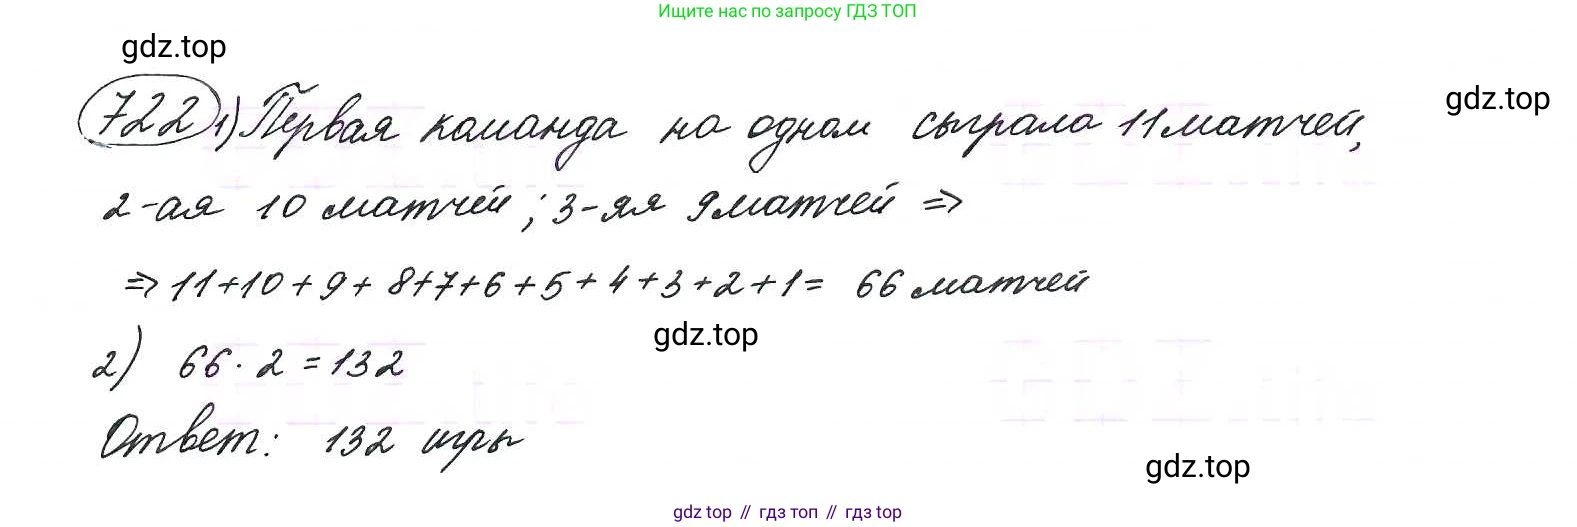 Ищите нас по запросу ГДЗ ТОП
gdz.top
gdz.top
722 1) Первая команда на одном сыграла 11 матчей,
2-ая 10 матчей; 3-яя 9 матчей ⇒
⇒ 11+10+9+8+7+6+5+4+3+2+1= 66 матчей
gdz.top
2) 66·2=132
Ответ: 132 игры
gdz.top
gdz top // гдз топ // gdz top